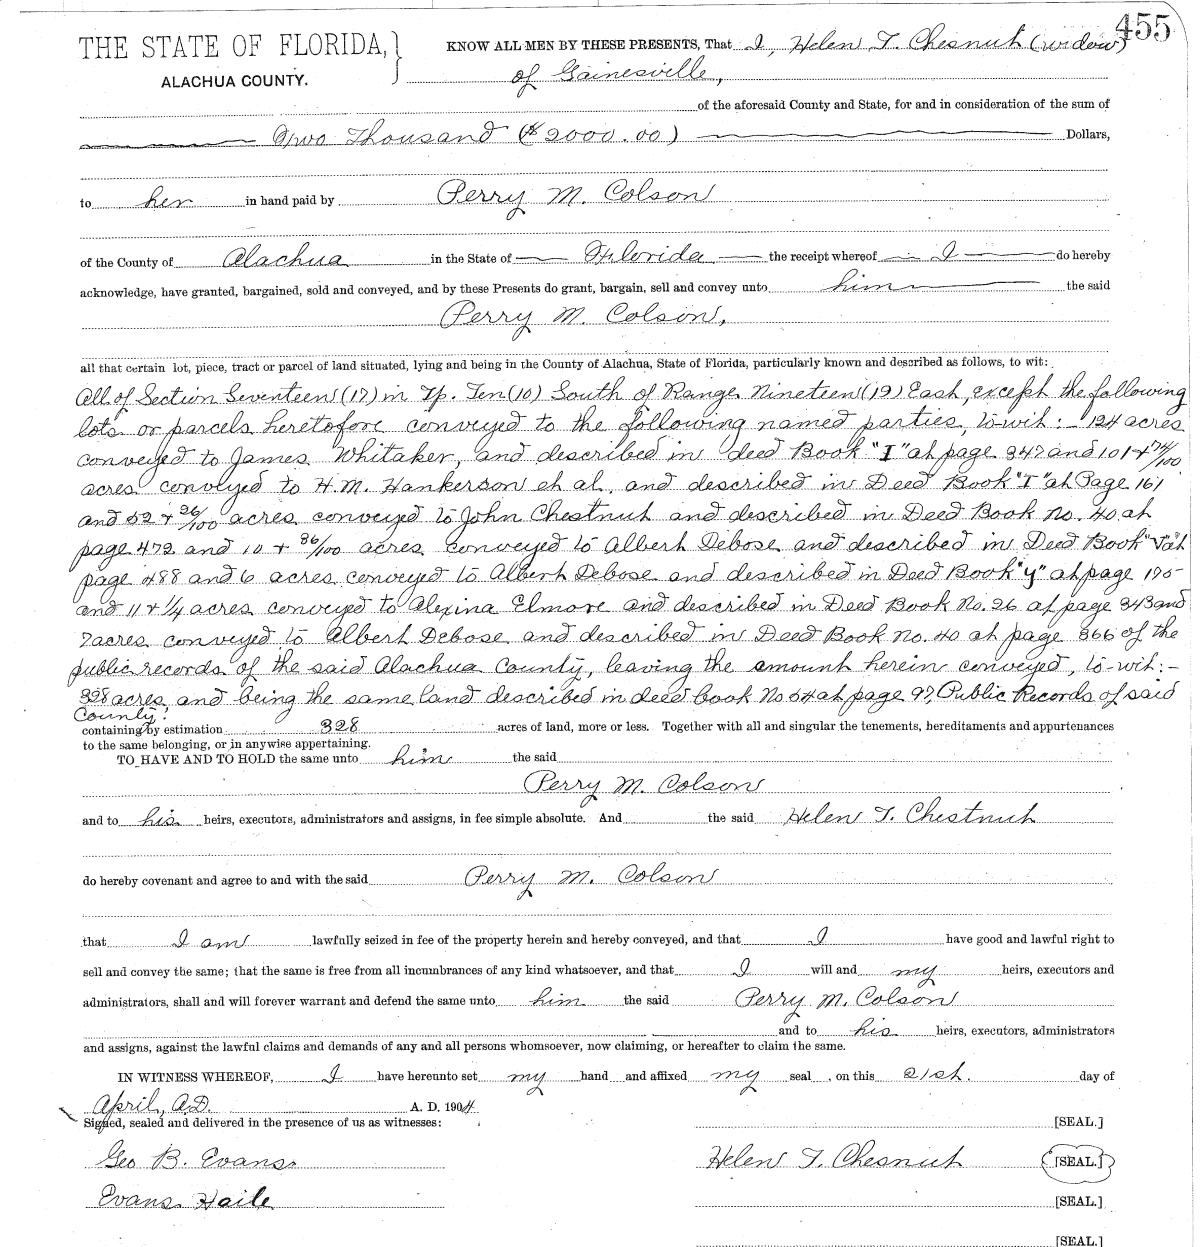 455
THE STATE OF FLORIDA,
ALACHUA COUNTY.
KNOW ALL MEN BY THESE PRESENTS, That I, Helen T. Chesnut (widow)
of Gainesville,
of the aforesaid County and State, for and in consideration of the sum of
Two Thousand ($2000.00) Dollars,
to her in hand paid by Perry M. Colson
of the County of Alachua in the State of Florida the receipt whereof I do hereby
acknowledge, have granted, bargained, sold and conveyed, and by these Presents do grant, bargain, sell and convey unto him the said
Perry M. Colson,
all that certain lot, piece, tract or parcel of land situated, lying and being in the County of Alachua, State of Florida, particularly known and described as follows, to wit:
All of Section Seventeen (17) in Tp. Ten (10) South of Range Nineteen (19) East, except the following
lots or parcels heretofore conveyed to the following named parties, to-wit:- 124 acres
conveyed to James Whitaker, and described in deed Book "I" at page 347 and 101 + 74/100
acres conveyed to H.M. Hankerson et al, and described in Deed Book "T" at Page 161
and 52 + 26/100 acres conveyed to John Chestnut and described in Deed Book No. 40 at
page 472 and 10 + 86/100 acres conveyed to Albert Debose and described in Deed Book "V" at
page 488 and 6 acres conveyed to Albert Debose and described in Deed Book "Y" at page 195
and 11 + 1/4 acres conveyed to Alexina Elmore and described in Deed Book No. 26 at page 343 and
7 acres conveyed to Albert Debose and described in Deed Book No. 40 at page 366 of the
public records of the said Alachua County, leaving the amount herein conveyed, to-wit:-
328 acres, and being the same land described in deed book No 54 at page 97, Public Records of said
County.
containing by estimation 328 acres of land, more or less. Together with all and singular the tenements, hereditaments and appurtenances
to the same belonging, or in anywise appertaining.
TO HAVE AND TO HOLD the same unto him the said
Perry M. Colson
and to his heirs, executors, administrators and assigns, in fee simple absolute. And the said Helen T. Chestnut
do hereby covenant and agree to and with the said Perry M. Colson
that I am lawfully seized in fee of the property herein and hereby conveyed, and that I have good and lawful right to
sell and convey the same; that the same is free from all incumbrances of any kind whatsoever, and that I will and my heirs, executors and
administrators, shall and will forever warrant and defend the same unto him the said Perry M. Colson
and to his heirs, executors, administrators
and assigns, against the lawful claims and demands of any and all persons whomsoever, now claiming, or hereafter to claim the same.
IN WITNESS WHEREOF, I have hereunto set my hand and affixed my seal, on this 21st. day of
April, A.D. A. D. 1904
Signed, sealed and delivered in the presence of us as witnesses: [SEAL.]
Geo B. Evans Helen T. Chesnut [SEAL.]
Evans Haile [SEAL.]
[SEAL.]